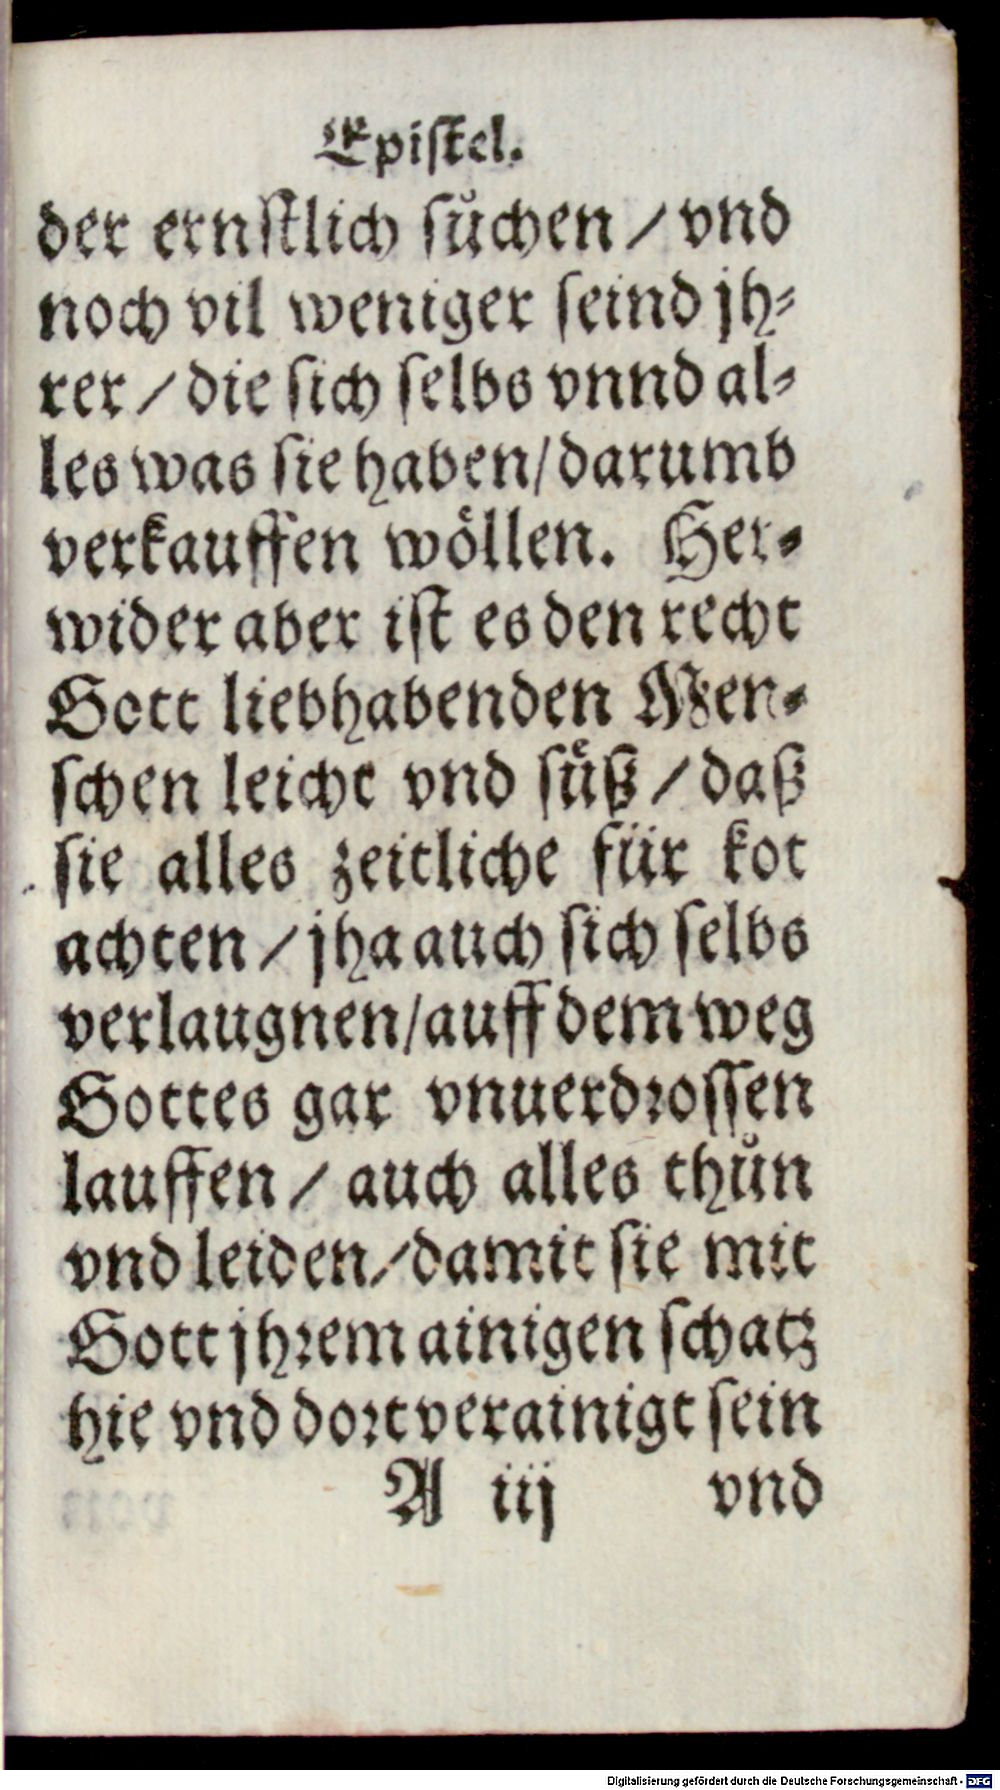 Epistel.
der ernstlich sůchen / vnd
noch vil weniger seind jh-
rer / die sich selbs vnnd al-
les was sie haben / darumb
verkauffen wöllen. Her-
wider aber ist es den recht
Gott liebhabenden Men-
schen leicht vnd süß / daß
sie alles zeitliche für kot
achten / jha auch sich selbs
verlaugnen / auff dem weg
Gottes gar vnuerdrossen
lauffen / auch alles thůn
vnd leiden / damit sie mit
Gott jhrem ainigen schatz
hie vnd dort verainigt sein
A iij vnd
Digitalisierung gefördert durch die Deutsche Forschungsgemeinschaft - DFG